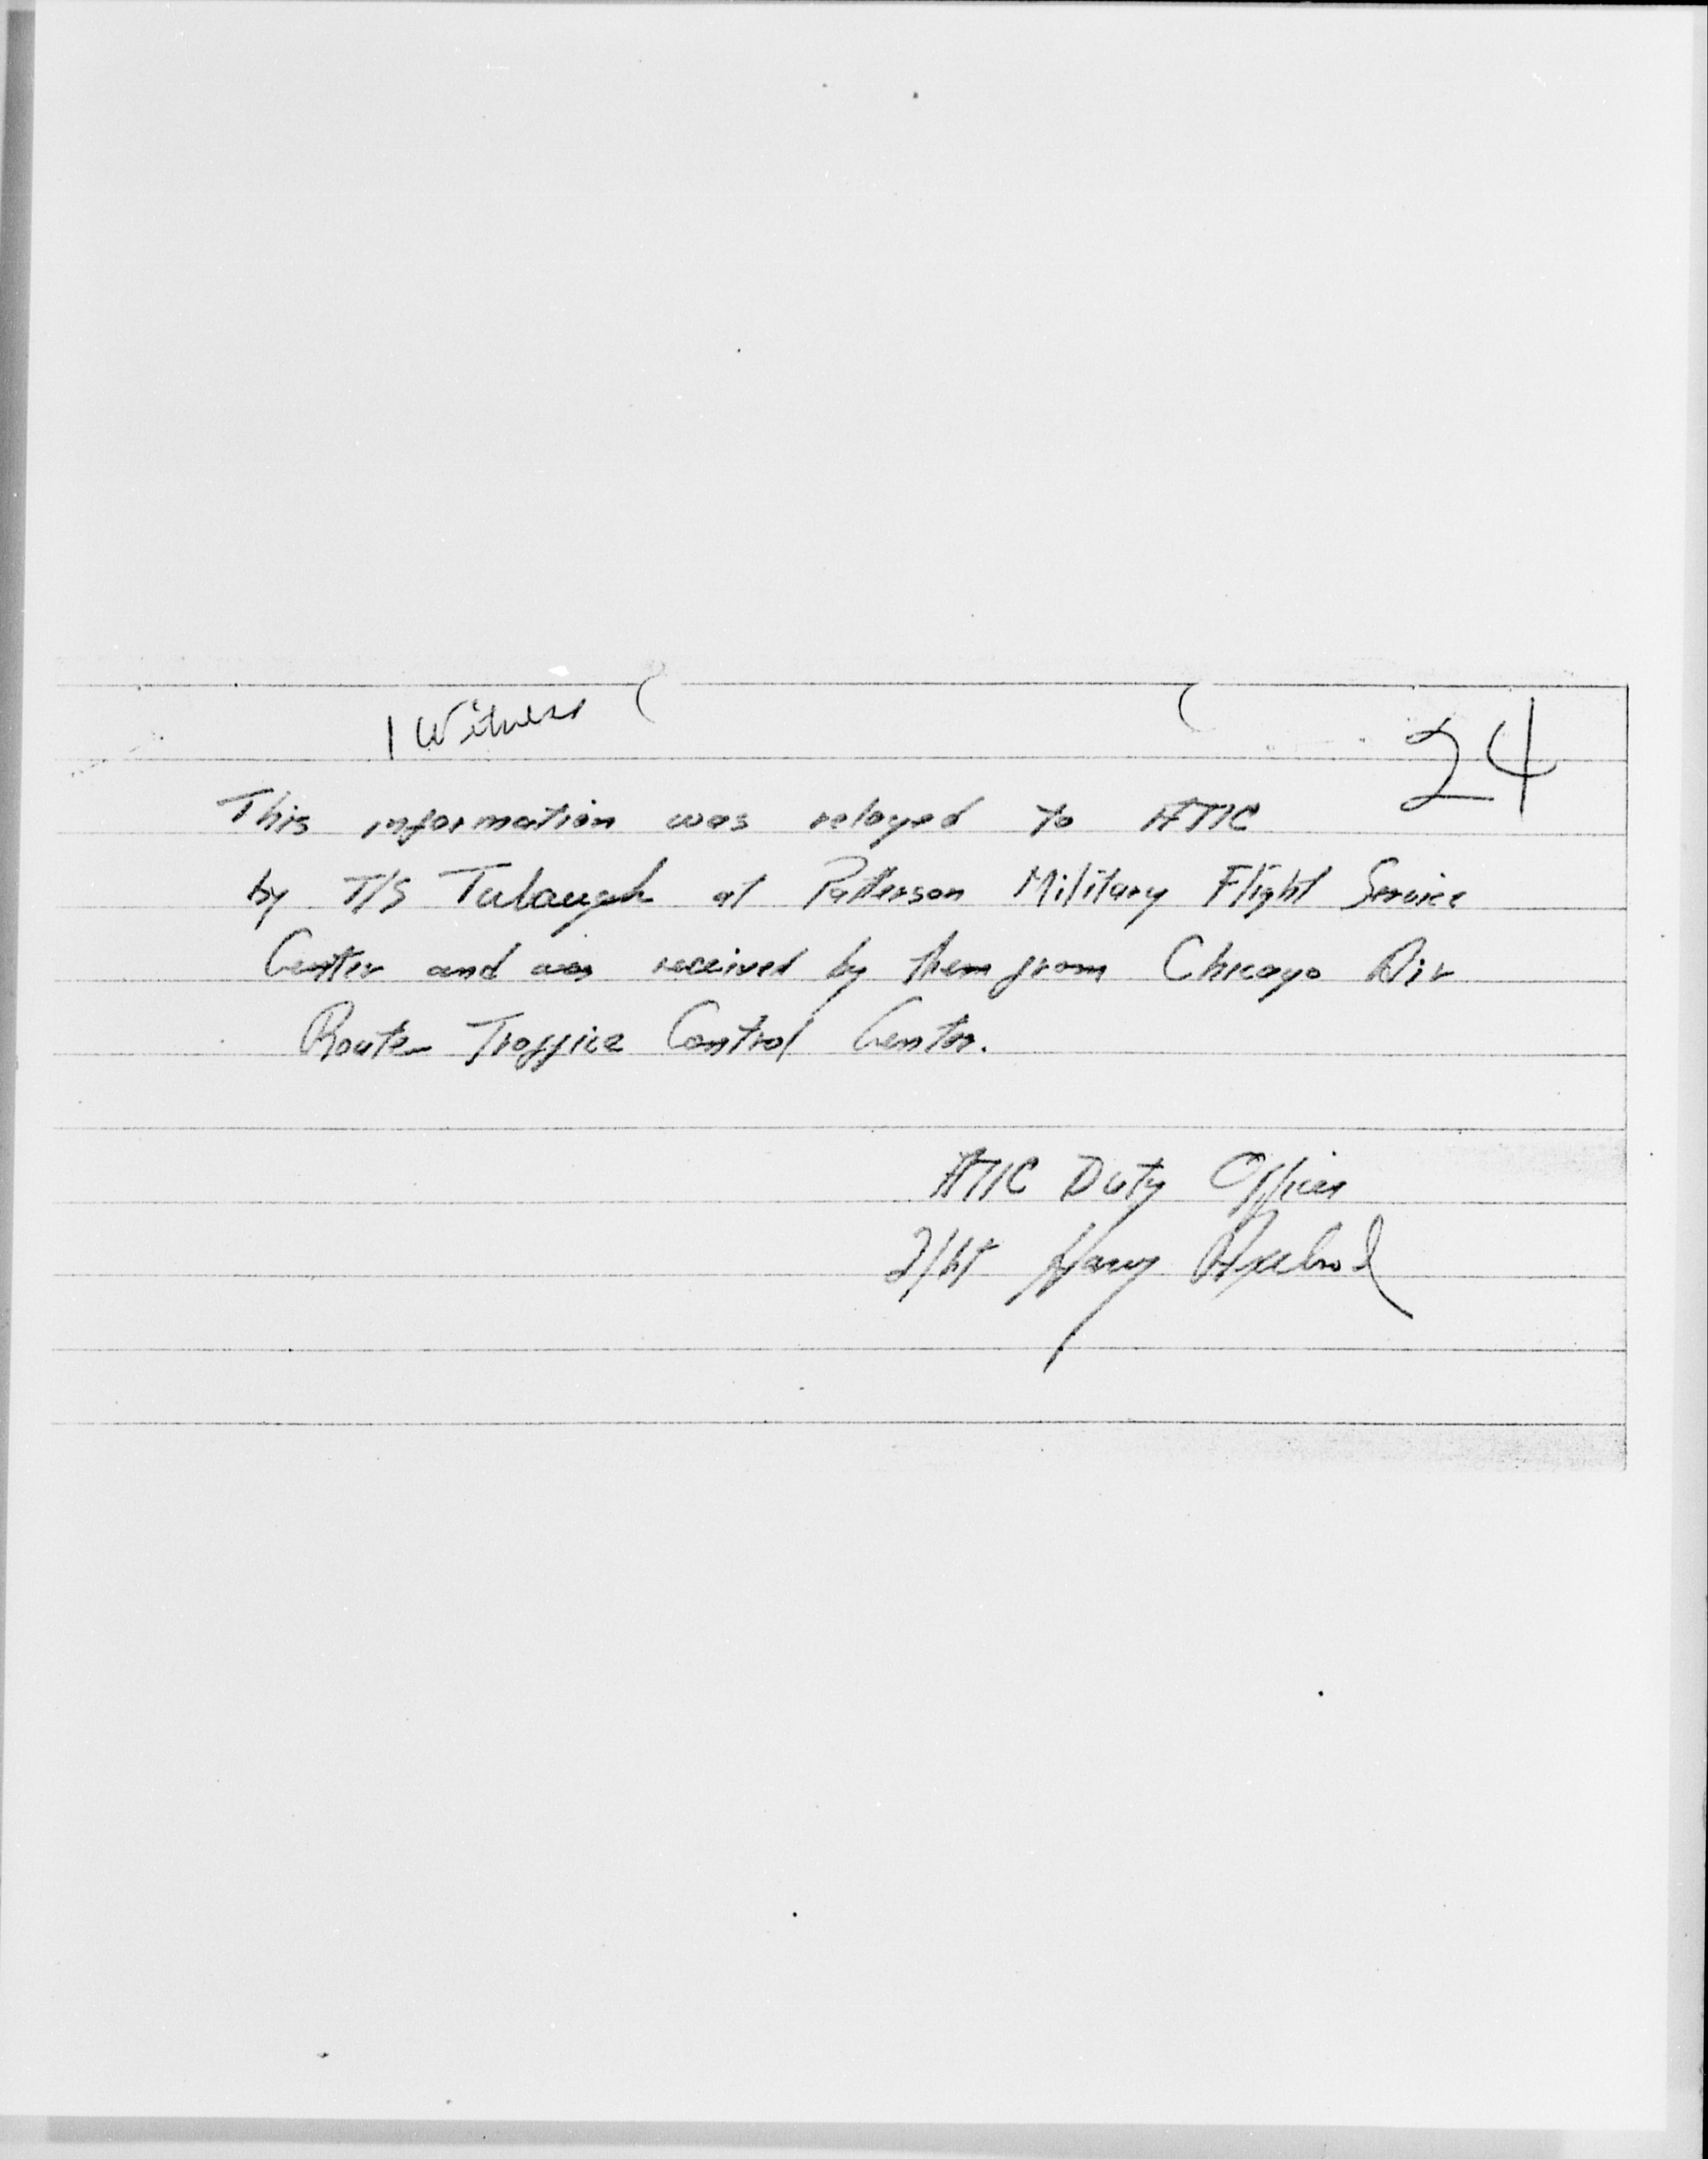 1 Witness
24
This information was relayed to ATIC
by T/S Tulaugh at Patterson Military Flight Service
Center and was received by them from Chicago Air
Route Traffice Control Center.
ATIC Duty Officer
2/Lt Harry Axelrod